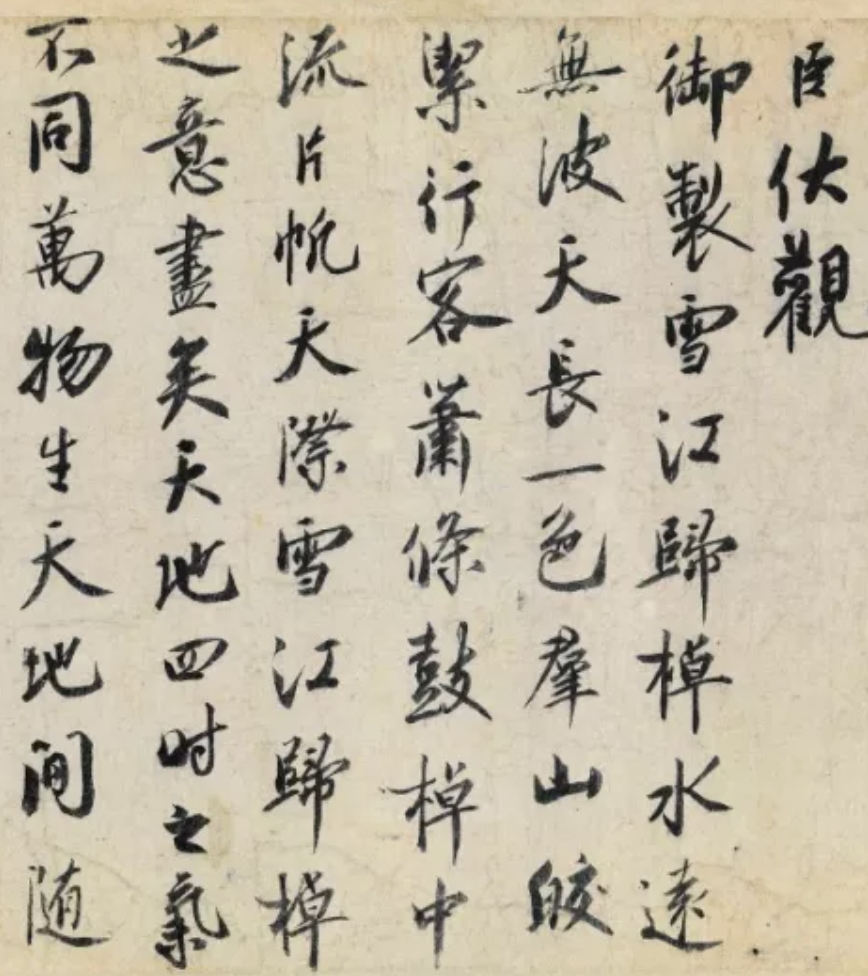 臣伏觀
御製雪江歸棹水遠
無波天長一色羣山皎
潔行客蕭條鼓棹中
流片帆天際雪江歸棹
之意盡矣天地四時之氣
不同萬物生天地間随